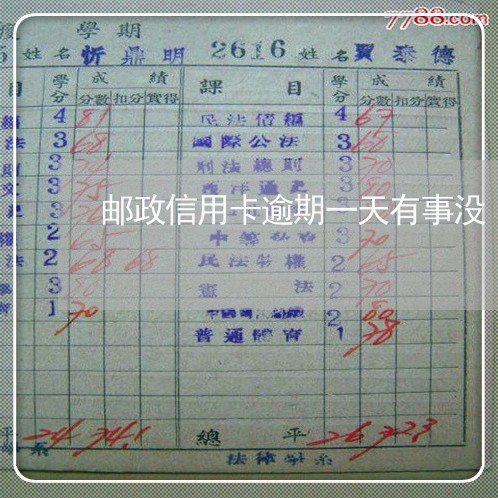 7788.com
學期
姓名 忻鼎明 2616 姓名 賈泰德
目 學分 成績 課目 學分 成績
分數 扣分 實得 分數 扣分 實得
4 81 民法債編 4 67
法 3 68 國際公法 3 60
3 刑法總則 3 70
3 75 西洋通史 3 80
邮政信用卡逾期一天有事没
2 65 3 70
法 2 68 68 民法物權 2 65
3 80 憲法 2 70
1 70 2 80
普通體育 1 78
平 24 74.1 總平 26 72.3
系 法律學系